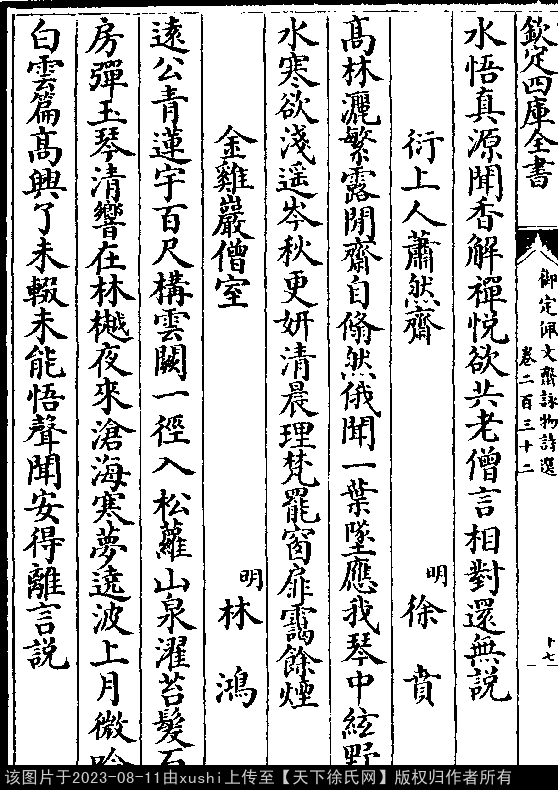 欽定四庫全書
御定佩文齋詠物詩選
卷二百三十二
十七
水悟真源聞香解禪悅欲共老僧言相對還無說
衍上人蕭然齋
明
徐賁
高林灑繁露閒齋自翛然俄聞一葉墜應我琴中絃野
水寒欲淺遥岑秋更妍清晨理梵罷窗扉靄餘煙
金雞巖僧室
明
林鴻
遠公青蓮宇百尺構雲闕一徑入松蘿山泉濯苔髮石
房彈玉琴清響在林樾夜來滄海寒夢遶波上月微吟
白雲篇高興了未輟未能悟聲聞安得離言說
该图片于2023-08-11由xushi上传至【天下徐氏网】版权归作者所有